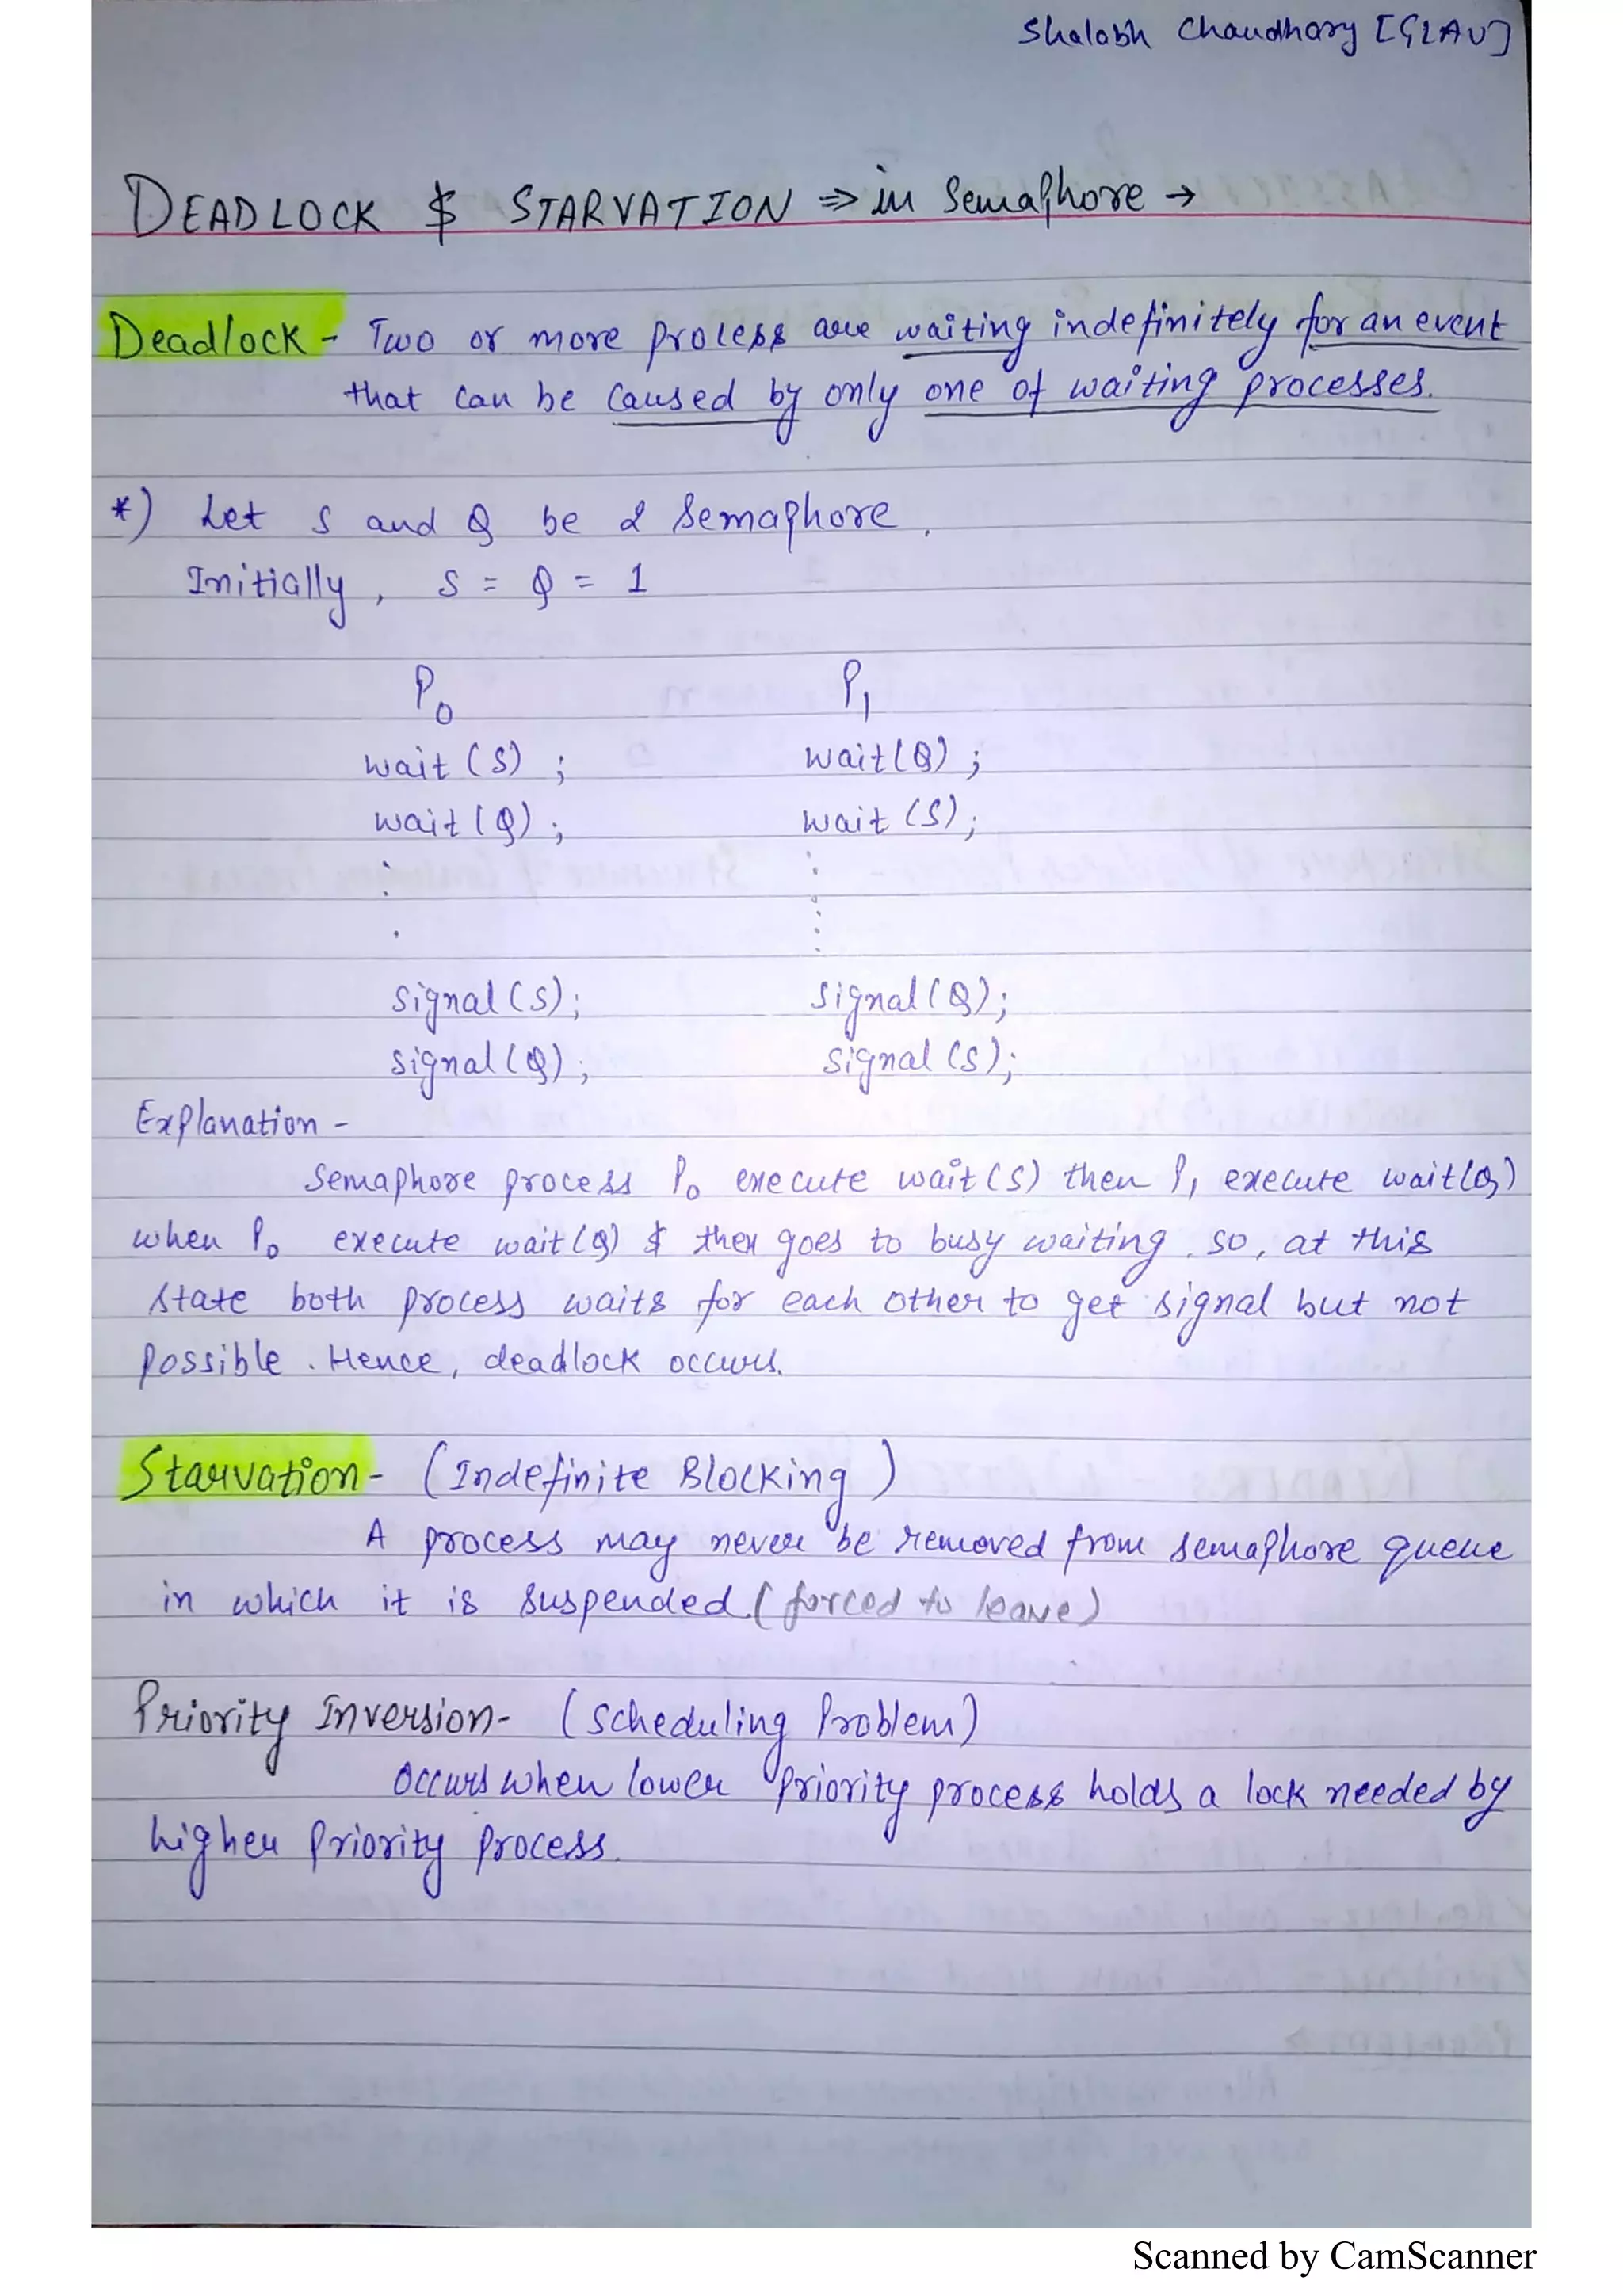 Shalabh Chaudhary [GLAU]
DEADLOCK & STARVATION ⇒ in Semaphore →
Deadlock - Two or more process are waiting indefinitely for an event
that can be caused by only one of waiting processes.
*) Let S and Q be 2 Semaphore.
Initially, S = Q = 1
P0 P1
wait (S) ; wait(Q) ;
wait (Q) ; wait (S);
signal (S); signal (Q);
signal (Q); signal (S);
Explanation -
Semaphore process P0 execute wait (S) then P1 execute wait(Q)
when P0 execute wait (Q) & then goes to busy waiting. so, at this
state both process waits for each other to get signal but not
possible. Hence, deadlock occurs.
Starvation - (Indefinite Blocking)
A process may never be removed from semaphore queue
in which it is suspended. (forced to leave)
Priority Inversion - (Scheduling Problem)
Occurs when lower priority process holds a lock needed by
higher priority process.
Scanned by CamScanner